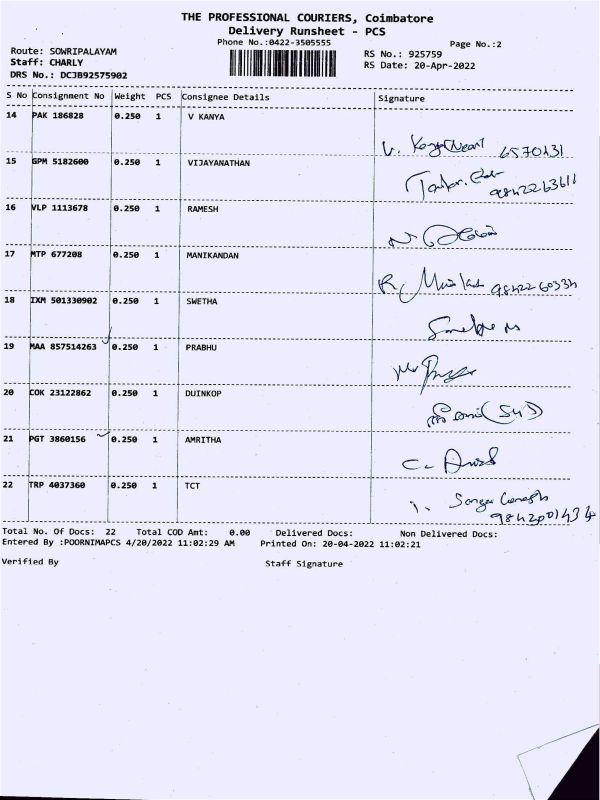 THE PROFESSIONAL COURIERS, Coimbatore
Delivery Runsheet - PCS
Phone No.:0422-3505555
Page No.:2
Route: SOWRIPALAYAM
RS No.: 925759
Staff: CHARLY
RS Date: 20-Apr-2022
DRS No.: DCJB92575902
S No Consignment No Weight PCS Consignee Details Signature
14 PAK 186828 0.250 1 V KANYA
15 GPM 5182600 0.250 1 VIJAYANATHAN
16 VLP 1113678 0.250 1 RAMESH
17 MTP 677208 0.250 1 MANIKANDAN
18 IXM 501330902 0.250 1 SWETHA
19 MAA 857514263 0.250 1 PRABHU
20 COK 23122862 0.250 1 DUINKOP
21 PGT 3860156 0.250 1 AMRITHA
22 TRP 4037360 0.250 1 TCT
Total No. Of Docs: 22 Total COD Amt: 0.00 Delivered Docs: Non Delivered Docs:
Entered By :POORNIMAPCS 4/20/2022 11:02:29 AM Printed On: 20-04-2022 11:02:21
Verified By Staff Signature